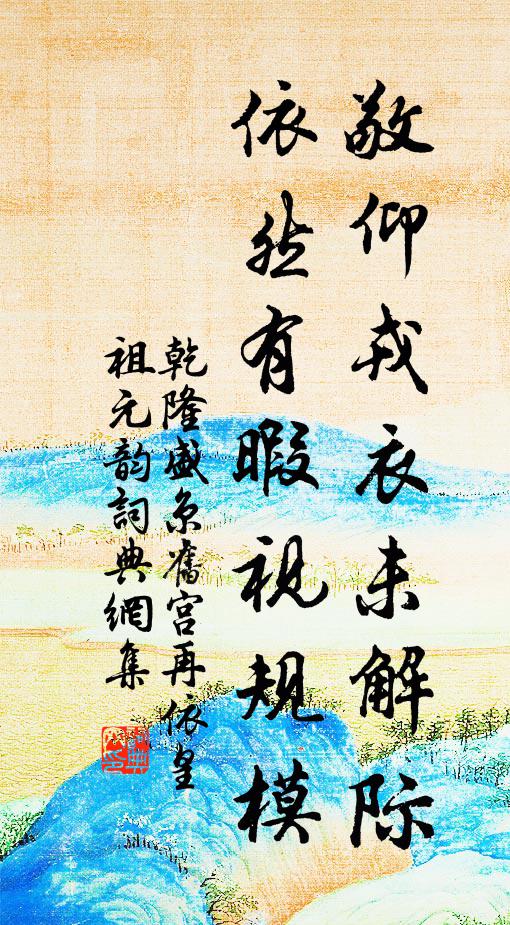 敬仰戎衣未解际
依然有暇視規模
乾隆盛京舊宮再依皇
祖元韵詞典網集